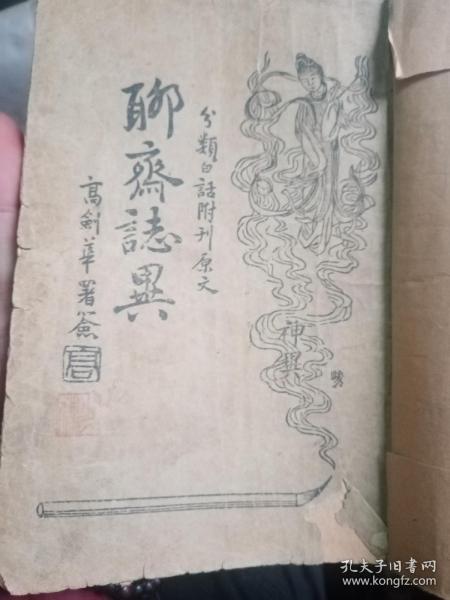 分類白話附刊原文
聊齋誌異
高劍華署簽
神異
孔夫子旧书网
www.kongfz.com